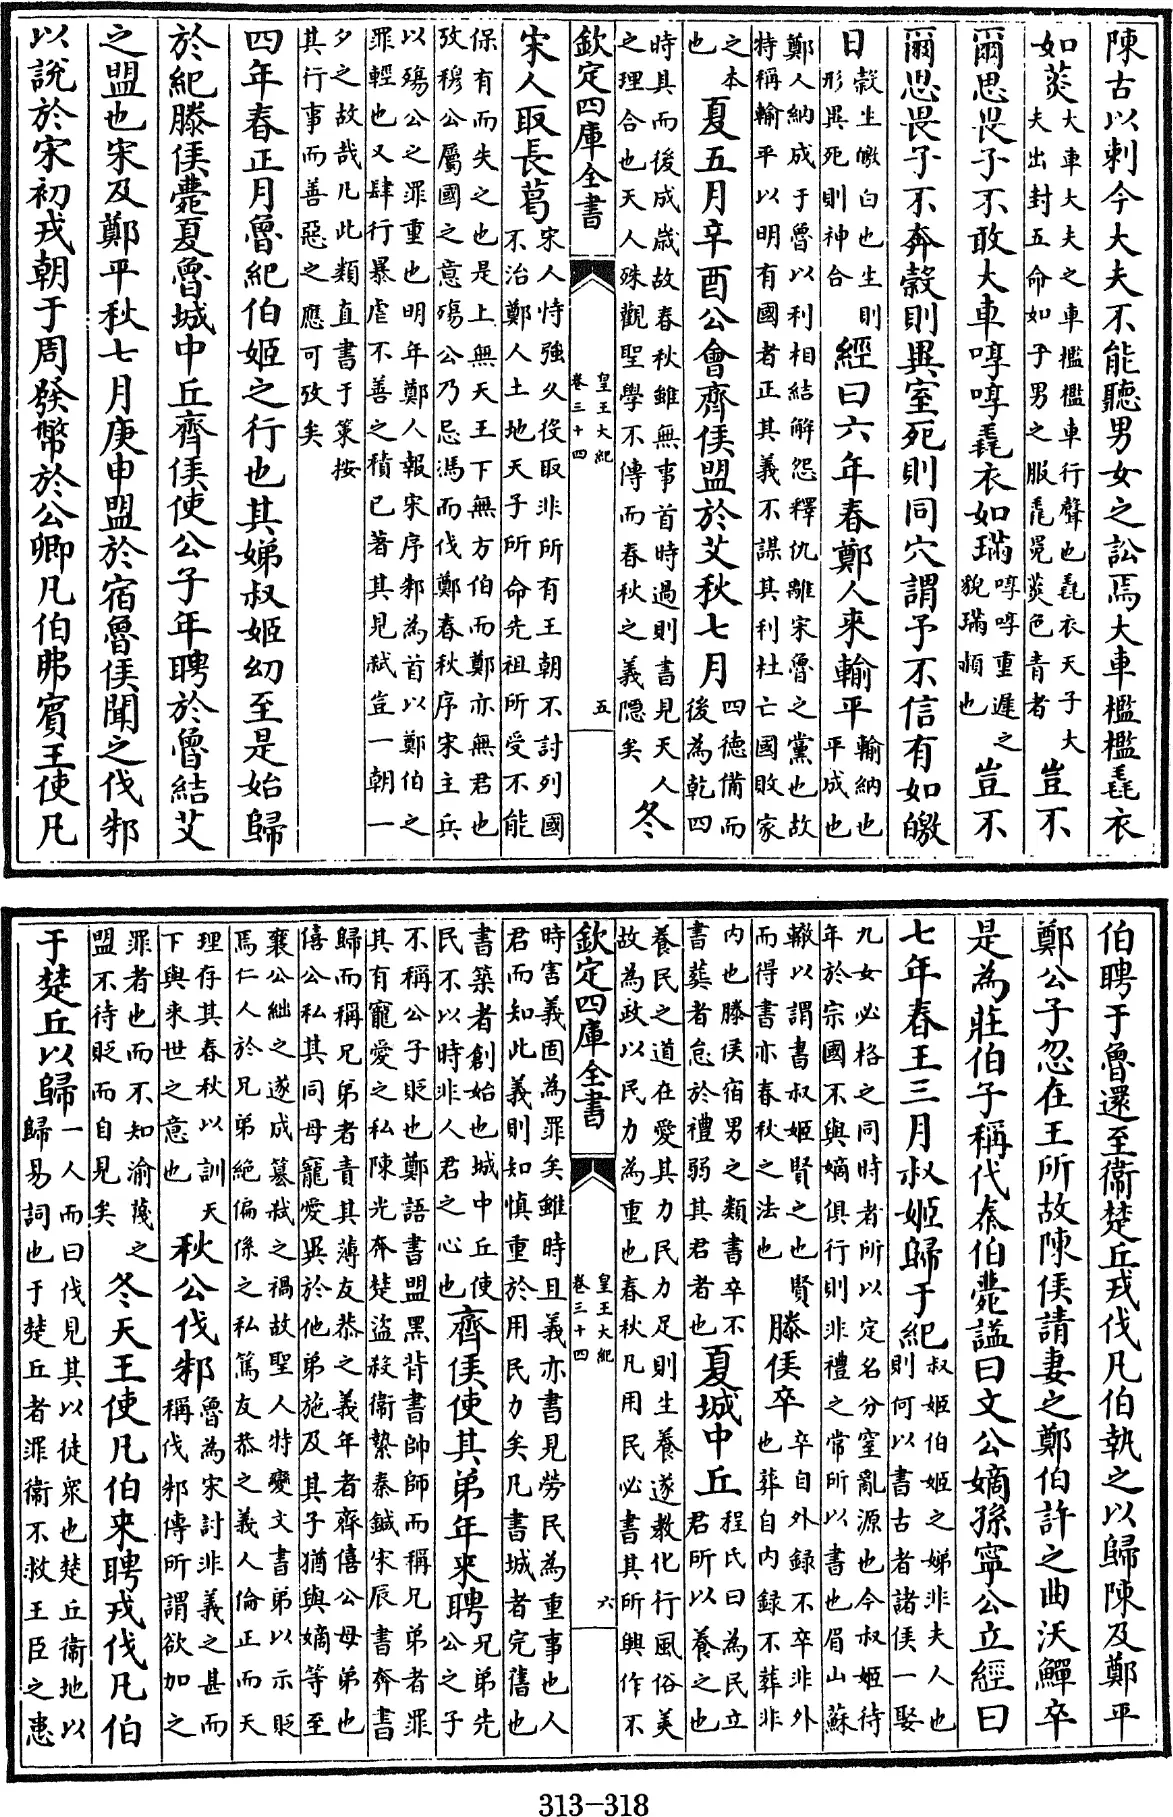 陳古以刺今大夫不能聽男女之訟焉大車檻檻毳衣
如菼大車大夫之車檻檻車行聲也毳衣天子大
夫出封五命如子男之服毳冕菼色青者豈不
爾思畏子不敢大車啍啍毳衣如璊啍啍重遲之
貌璊赬也豈不
爾思畏子不奔榖則異室死則同穴謂予不信有如皦
日榖生皦白也生則
形異死則神合經曰六年春鄭人來輸平輸納也
平成也
鄭人納成于魯以利相結解怨釋仇離宋魯之黨也故
特稱輸平以明有國者正其義不謀其利杜亡國敗家
之本
也夏五月辛酉公會齊侯盟於艾秋七月四德備而
後為乾四
時具而後成歲故春秋雖無事首時過則書見天人
之理合也天人殊觀聖學不傳而春秋之義隱矣冬
欽定四庫全書
皇王大紀
卷三十四
五
宋人取長葛宋人恃強久役取非所有王朝不討列國
不治鄭人土地天子所命先祖所受不能
保有而失之也是上無天王下無方伯而鄭亦無君也
攷穆公屬國之意殤公乃忌馮而伐鄭春秋序宋主兵
以殤公之罪重也明年鄭人報宋序邾為首以鄭伯之
罪輕也又肆行暴虐不善之積已著其見弑豈一朝一
夕之故哉凡此類直書于策按
其行事而善惡之應可攷矣
四年春正月魯紀伯姬之行也其娣叔姬幼至是始歸
於紀滕侯薨夏魯城中丘齊侯使公子年聘於魯結艾
之盟也宋及鄭平秋七月庚申盟於宿魯侯聞之伐邾
以說於宋初戎朝于周發幣於公卿凡伯弗賓王使凡
伯聘于魯還至衞楚丘戎伐凡伯執之以歸陳及鄭平
鄭公子忽在王所故陳侯請妻之鄭伯許之曲沃鱓卒
是為莊伯子稱代秦伯薨諡曰文公嫡孫寧公立經曰
七年春王三月叔姬歸于紀叔姬伯姬之娣非夫人也
則何以書古者諸侯一娶
九女必格之同時者所以定名分窒亂源也今叔姬待
年於宗國不與嫡俱行則非禮之常所以書也眉山蘇
轍以謂書叔姬賢之也賢
而得書亦春秋之法也滕侯卒卒自外録不卒非外
也葬自内録不葬非
内也滕侯宿男之類書卒不
書葬者怠於禮弱其君者也夏城中丘程氏曰為民立
君所以養之也
養民之道在愛其力民力足則生養遂教化行風俗美
故為政以民力為重也春秋凡用民必書其所興作不
欽定四庫全書
皇王大紀
卷三十四
六
時害義固為罪矣雖時且義亦書見勞民為重事也人
君而知此義則知慎重於用民力矣凡書城者完舊也
書築者創始也城中丘使
民不以時非人君之心也齊侯使其弟年來聘兄弟先
公之子
不稱公子貶也鄭語書盟黑背書帥師而稱兄弟者罪
其有寵愛之私陳光奔楚盜殺衞縶秦鍼宋辰書奔書
歸而稱兄弟者責其薄友恭之義年者齊僖公母弟也
僖公私其同母寵愛異於他弟施及其子猶與嫡等至
襄公絀之遂成簒弑之禍故聖人特變文書弟以示貶
焉仁人於兄弟絶偏係之私篤友恭之義人倫正而天
理存其春秋以訓天
下與來世之意也秋公伐邾魯為宋討非義之甚而
稱伐邾傳所謂欲加之
罪者也而不知渝薎之
盟不待貶而自見矣冬天王使凡伯來聘戎伐凡伯
于楚丘以歸一人而曰伐見其以徒衆也楚丘衞地以
歸易詞也于楚丘者罪衞不救王臣之患
313–318